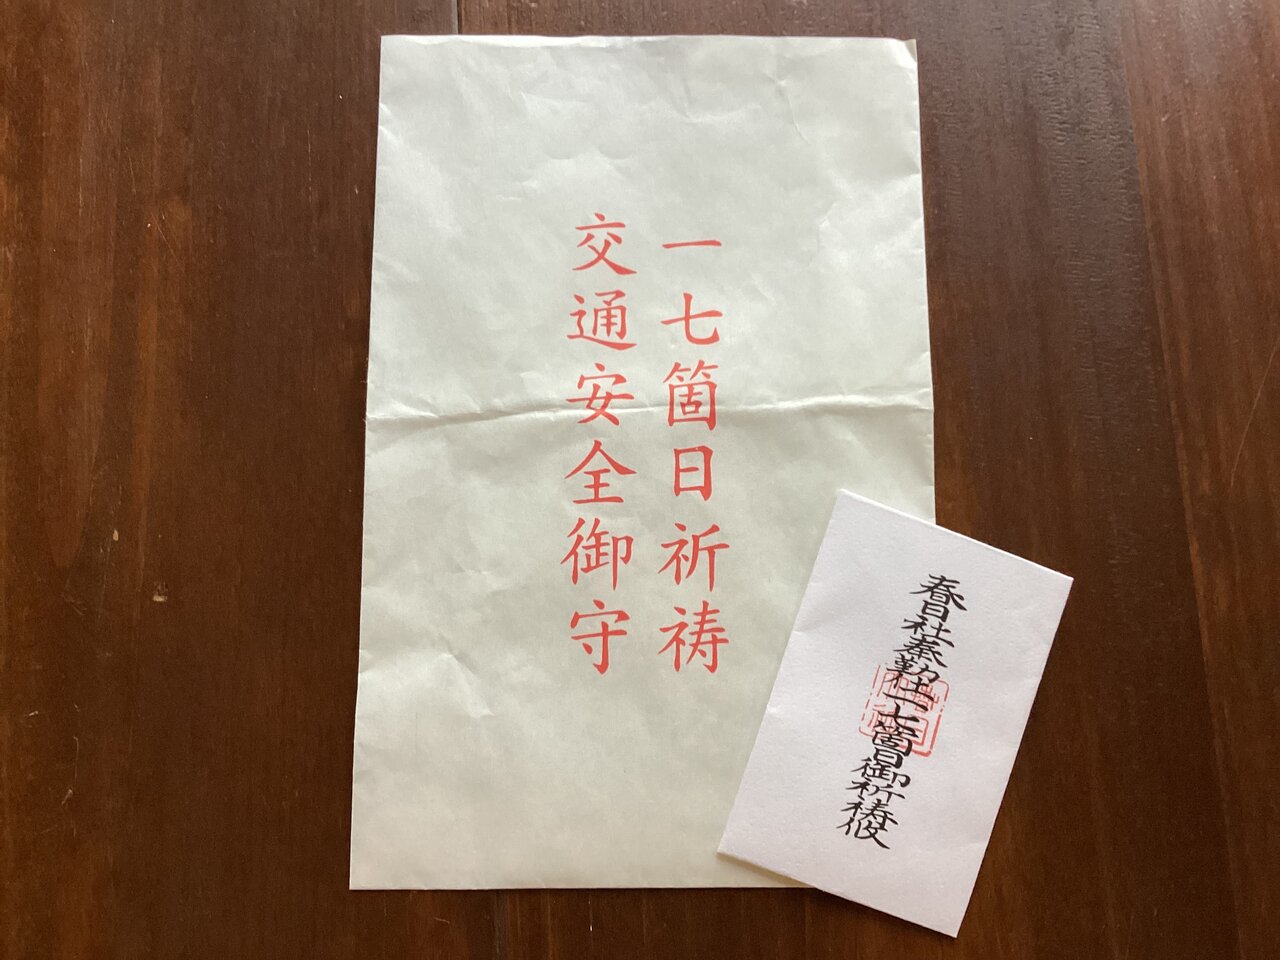 一七箇日祈祷
交通安全御守
春日社奉勤仕一七箇日御祈祷攸